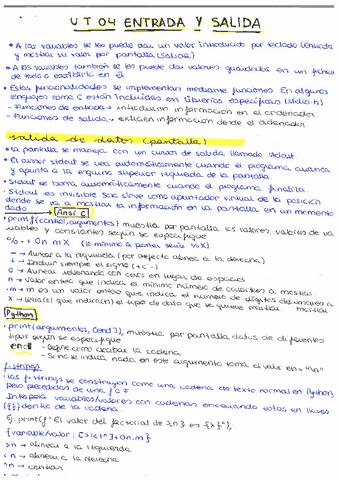 UT04 ENTRADA Y SALIDA
• A las variables se les puede dar un valor introducido por teclado (Entrada
y mostrar su valor por pantalla (Salida)
• A las variables también se les puede dar valores guardados en un fichero
de texto o escribirlo en él
• Estas funcionalidades se implementan mediante funciones. En algunos
lenguajes como C están incluidas en librerías específicas (stdio.h)
- Funciones de entrada → introducen información en el ordenador
- Funciones de salida → extraen información desde el ordenador
salida de datos (pantalla)
• La pantalla se maneja con un cursor de salida llamado stdout
• El cursor stdout se crea automáticamente cuando el programa avanza
y apunta a la esquina superior izquierda de la pantalla
• stdout se borra automáticamente cuando el programa finaliza
• stdout es invisible que sirve como apuntador virtual de la posición
donde se va a mostrar la información en la pantalla en un momento
dado
Ansi C
• printf(control, argumentos) muestra por pantalla los valores, valores de va
riables y constantes según se especifique
% - + 0n.mX (lo mínimo a poner sería %X)
- → Alinear a la izquierda (por defecto alinea a la derecha)
+ → Incluir siempre el signo (+ o -)
0 → Alinear rellenando con ceros en lugar de espacios
n → Valor entero que indica el mínimo número de caracteres a mostrar
.m → m es un valor entero que indica el número de dígitos decimales a
mostrar
x → letra(s) que indica(n) el tipo de dato que se quiere mostrar
Python
• print(argumentos, [end]), muestra por pantalla datos de diferentes
tipos según se especifique
end: - Define como acabar la cadena
- Si no se indica nada en este argumento toma el valor en = "\n"
f-strings
• Las f-strings se construyen como una cadena de texto normal en Python,
pero precedidas de una f o F
Interpola variables/valores con cadenas encerrando estas en llaves
({}) dentro de la cadena.
Ej: print(f"El valor del factorial de {n} es {x}")
{variable/valor: [>|<|^]+0n.m}
>n → alinear a la izquierda
<n → alinear a la derecha
^n → centrar